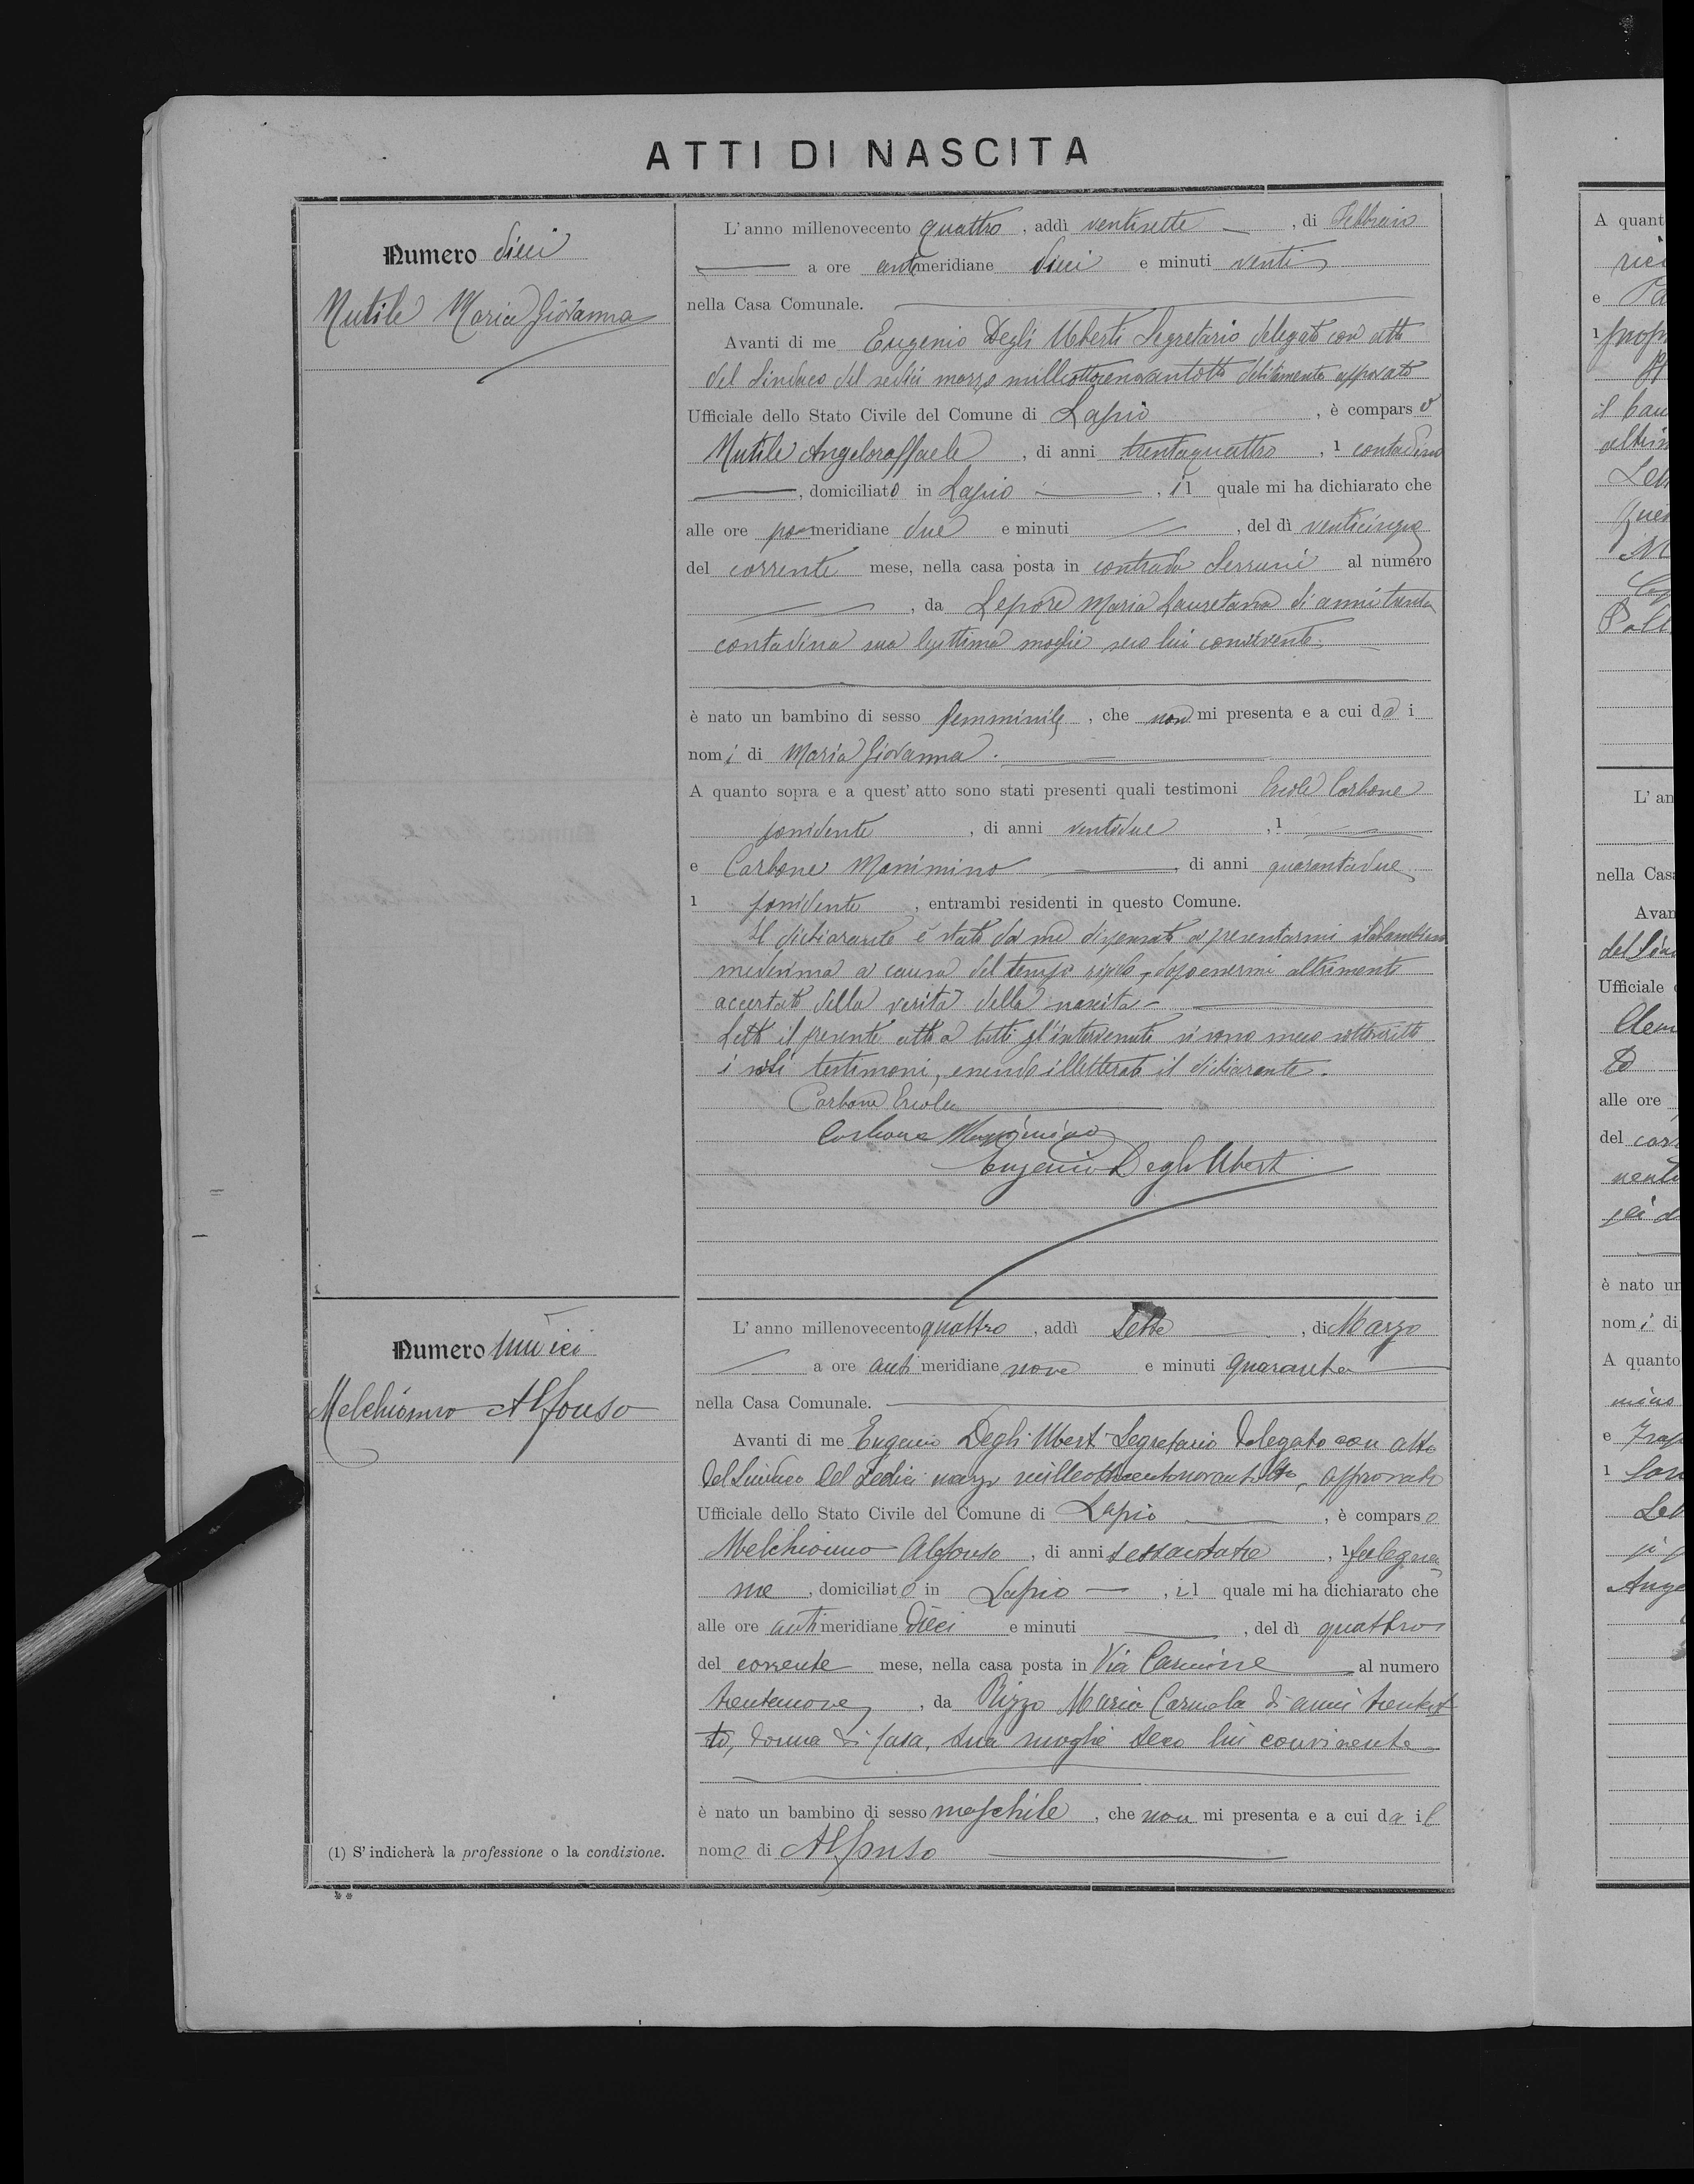 ATTI DI NASCITA
Numero dieci
Mutile Maria Giovanna
L'anno millenovecento quattro, addì ventisette, di Febbraio
a ore antimeridiane dieci e minuti venti
nella Casa Comunale.
Avanti di me Eugenio Degli Uberti Segretario delegato con atto
del Sindaco del sedici marzo milleottocennovantotto debitamente approvato
Ufficiale dello Stato Civile del Comune di Lapio, è comparso
Mutile Angeloraffaele, di anni trentaquattro, 1 contadino
, domiciliato in Lapio, il quale mi ha dichiarato che
alle ore pomeridiane due e minuti, del dì venticinque
del corrente mese, nella casa posta in contrada al numero
, da Lepore Maria Lauretana di anni trenta
contadina sua legittima moglie seco lui convivente
è nato un bambino di sesso femminile, che non mi presenta e a cui dà i
nomi di Maria Giovanna.
A quanto sopra e a quest'atto sono stati presenti quali testimoni Ercole Carbone
possidente, di anni ventidue, 1
e Carbone Massimino, di anni quarantadue
1 possidente, entrambi residenti in questo Comune.
Il dichiarante è stato da me dispensato a presentarmi
medesima a causa del tempo rigido, dopo essermi altrimenti
accertato della verità della nascita
Letto il presente atto a tutti gl'intervenuti si sono meco sottoscritti
i soli testimoni, essendo illetterato il dichiarante.
Carbone Ercole
Carbone Massimino
Eugenio Degli Uberti
Numero undici
Melchionno Alfonso
L'anno millenovecento quattro, addì Sette, di Marzo
a ore antimeridiane nove e minuti quaranta
nella Casa Comunale.
Avanti di me Eugenio Degli Uberti Segretario delegato con atto
del Sindaco del sedici marzo milleottocentonovantotto, approvato
Ufficiale dello Stato Civile del Comune di Lapio, è comparso
Melchionno Alfonso, di anni sessantatre, 1 falegna
me, domiciliato in Lapio, il quale mi ha dichiarato che
alle ore antimeridiane dieci e minuti, del dì quattro
del corrente mese, nella casa posta in Via Carmine al numero
trentanove, da Rizzo Maria Carmela di anni trentot
to, donna di casa, sua moglie seco lui convivente
è nato un bambino di sesso maschile, che non mi presenta e a cui da il
nome di Alfonso
(1) S'indicherà la professione o la condizione.
A quant
e
L'an
nella Cas
Avan
del Sin
Ufficiale
alle ore
del corr
è nato un
nomi di
A quanto
e
1